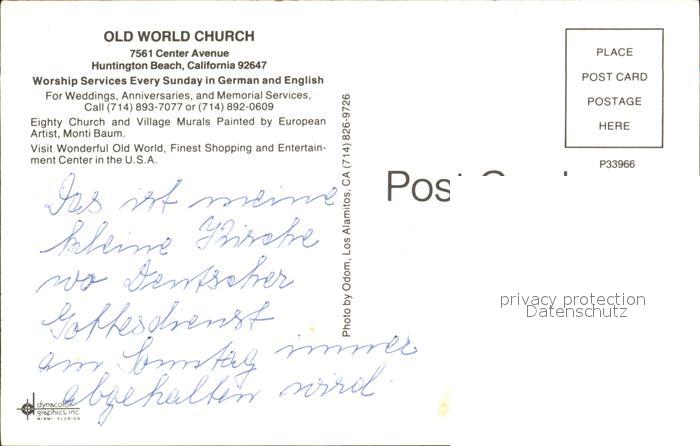 OLD WORLD CHURCH
7561 Center Avenue
Huntington Beach, California 92647
Worship Services Every Sunday in German and English
For Weddings, Anniversaries, and Memorial Services,
Call (714) 893-7077 or (714) 892-0609
Eighty Church and Village Murals Painted by European
Artist, Monti Baum.
Visit Wonderful Old World, Finest Shopping and Entertain-
ment Center in the U.S.A.
Das ist meine
kleine Kirche
wo Deutscher
Gottesdienst
am Sonntag immer
abgehalten wird.
dynacolor
graphics, inc.
MIAMI, FLORIDA
Photo by Odom, Los Alamitos, CA (714) 826-9726
PLACE
POST CARD
POSTAGE
HERE
P33966
Post
privacy protection
Datenschutz